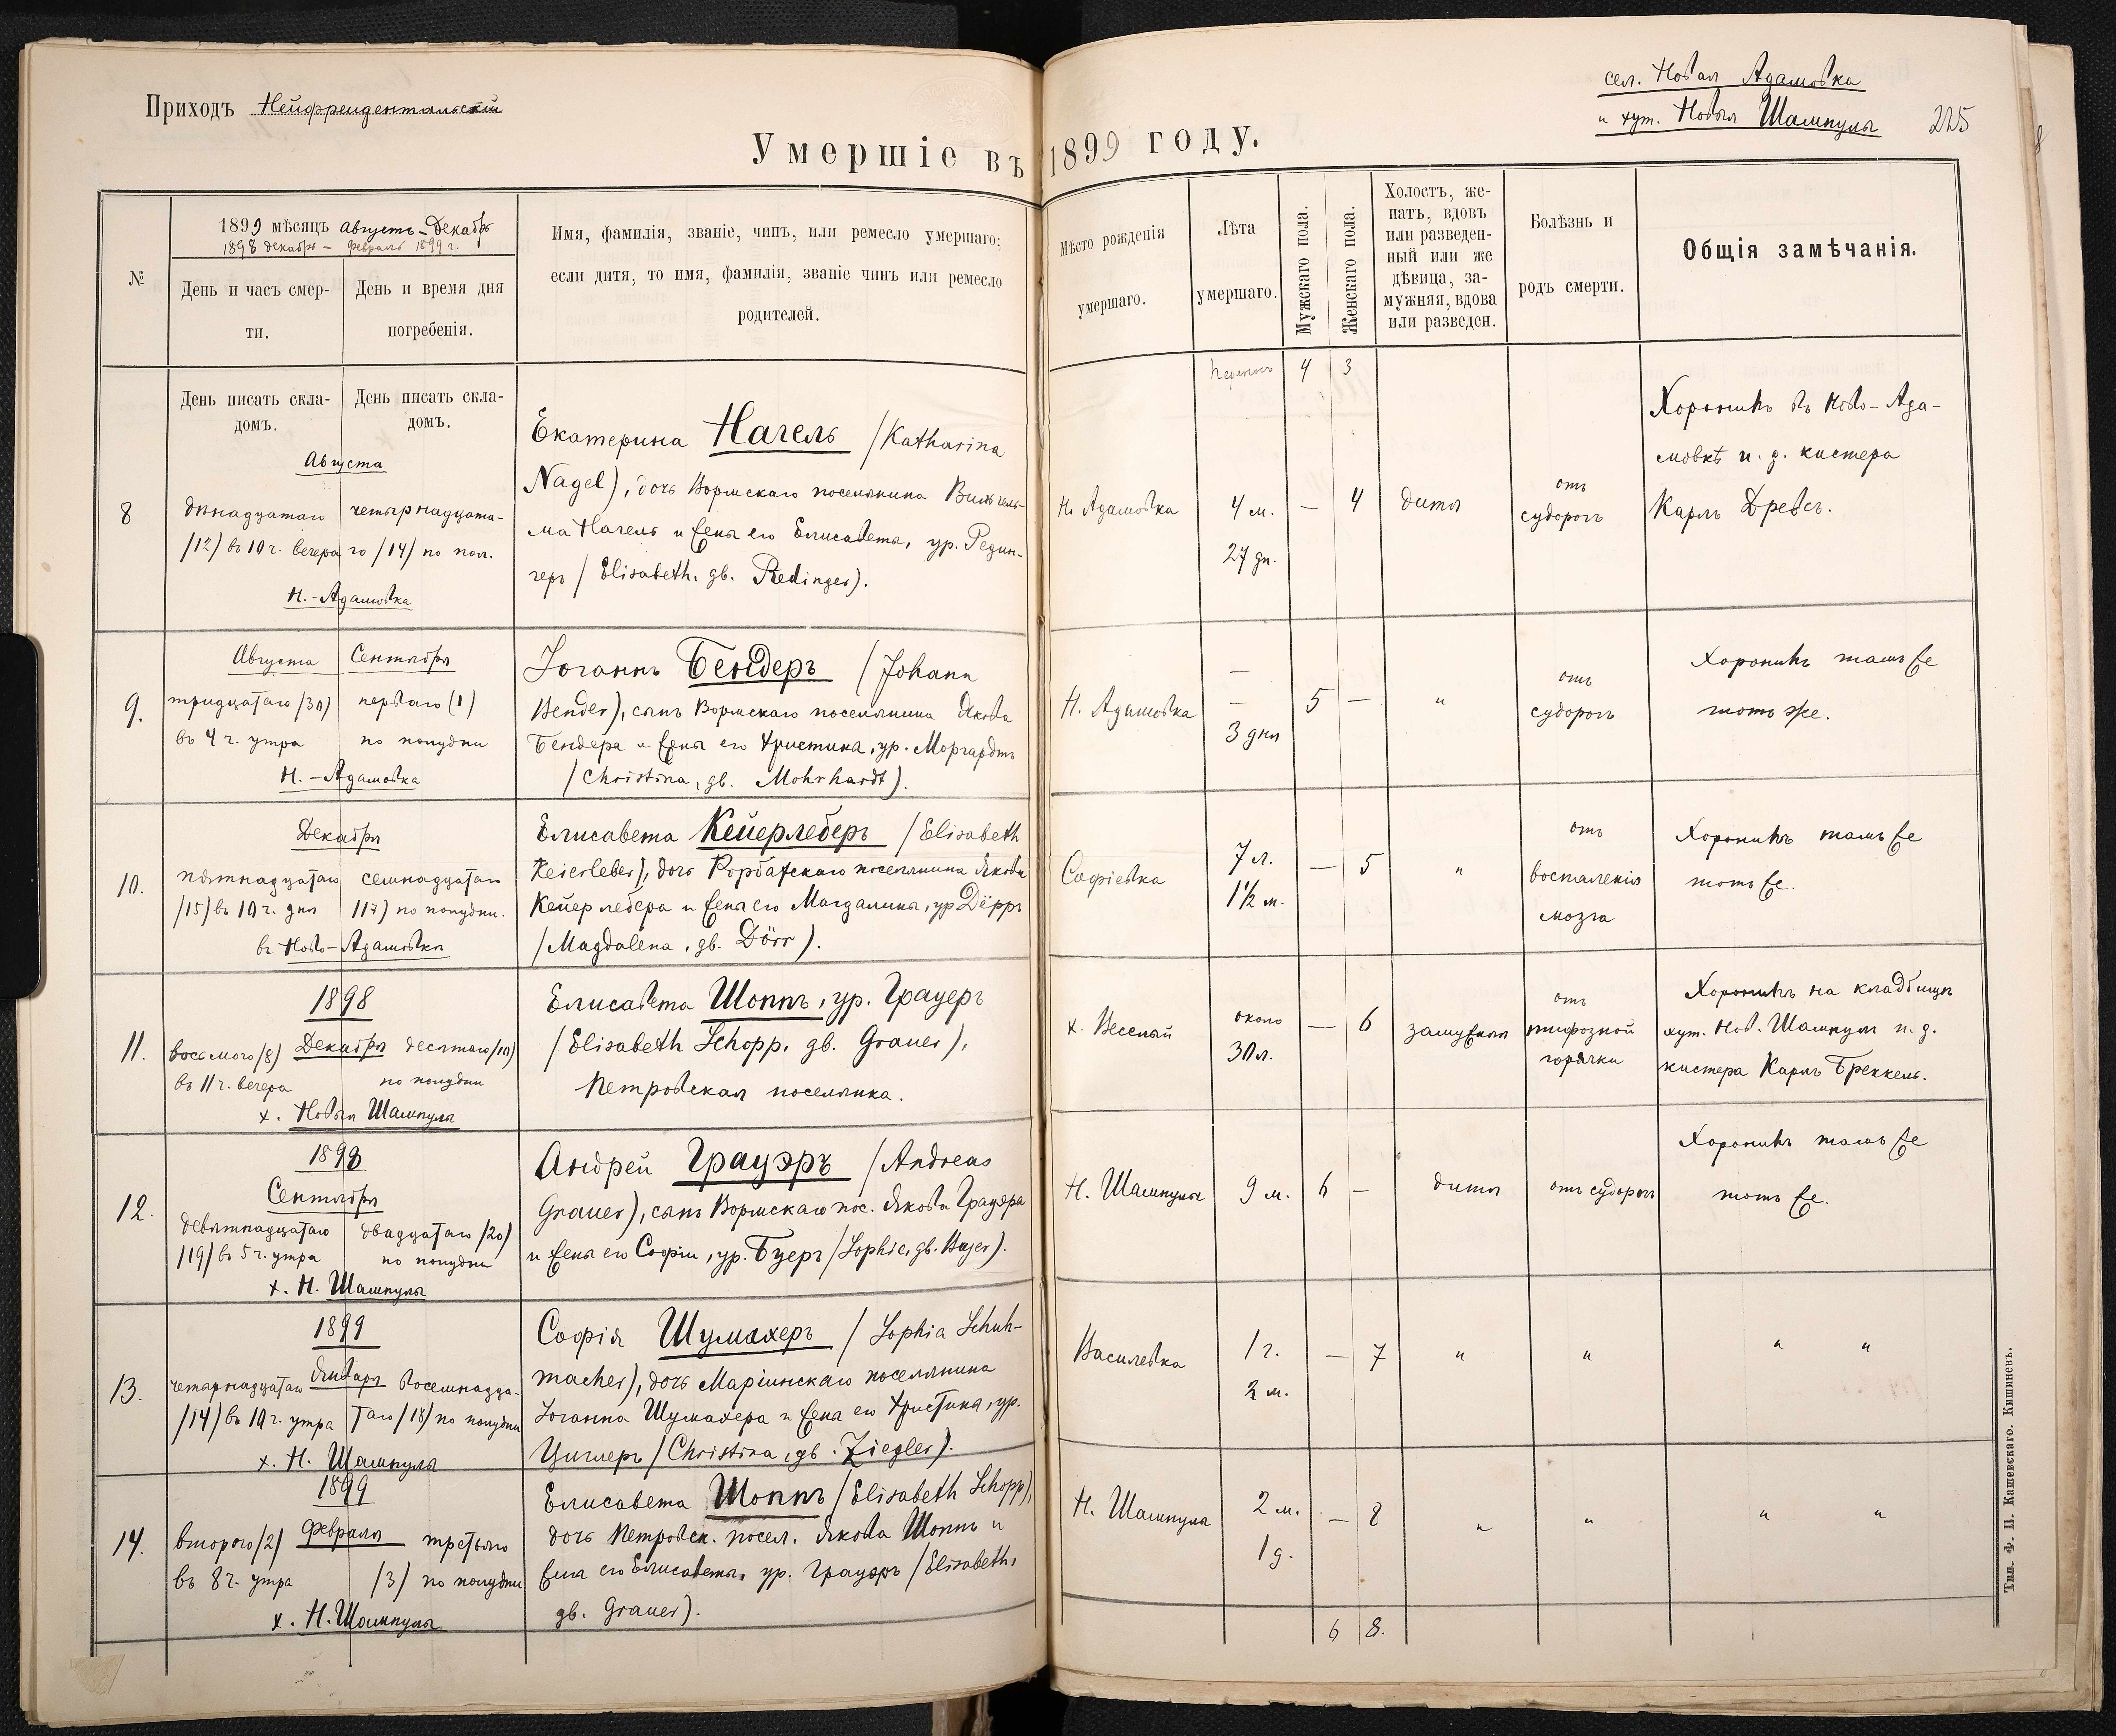 Приходъ Нейфрейдентальскій
сел. Новая Адамовка
и хут. Новыя Шампулы
225
Умершіе въ 1899 году.
№
1899 мѣсяцъ Августъ-Декабрь
1898 декабрь - февраль 1899 г.
День и часъ смер-
ти.
День и время дня
погребенія.
Имя, фамилія, званіе, чинъ, или ремесло умершаго;
если дитя, то имя, фамилія, званіе чинъ или ремесло
родителей.
Мѣсто рожденія
умершаго.
Лѣта
умершаго.
Мужскаго пола.
Женскаго пола.
Холостъ, же-
натъ, вдовъ
или разведен-
ный или же
дѣвица, за-
мужняя, вдова
или разведен.
Болѣзнь и
родъ смерти.
Общія замѣчанія.
День писать скла-
домъ.
День писать скла-
домъ.
4 3
8
Августа
двѣнадцатаго
/12/ въ 10 ч. вечера
четырнадцата-
го /14/ по пол.
Н.-Адамовка
Екатерина Нагель /Katharina
Nagel), дочь Вормскаго поселянина Вильгель-
ма Нагель и жены его Елисавета, ур. Редин-
геръ / Elisabeth. gb. Redinger).
Н. Адамовка
4 м.
27 дн.
— 4
дитя
отъ
судорогъ
Хоронилъ въ Ново-Ада-
мовкѣ и. д. кистера
Карлъ Древсъ.
9.
Августа
тридцатаго /30)
въ 4 ч. утра
Сентября
перваго (1)
по полудни
Н.-Адамовка
Іоганнъ Бендеръ /Johann
Bender), сынъ Вормскаго поселянина Якова
Бендера и жены его Христина, ур. Моргардтъ
/Christina, gb. Mohrhardt).
Н. Адамовка
—
—
3 дня
5 —
"
отъ
судорогъ
Хоронилъ тамъ же
тотъ же.
10.
Декабря
пятнадцатаго
/15/ въ 10 ч. дня
семнадцатаго
/17) по полудни.
въ Ново-Адамовкѣ
Елисавета Кейерлеберъ /Elisabeth
Keierleber), дочь Рорбахскаго поселянина Якова
Кейерлебера и жены его Магдалины, ур Дёрръ
/Magdalena, gb. Dörr).
Софіевка
7 л.
1½ м.
— 5
"
отъ
воспаленія
мозга
Хоронилъ тамъ же
тотъ же.
11.
1898
Декабря
восьмого /8)
въ 11 ч. вечера
десятаго /10)
по полудни
х. Новыя Шампулы
Елисавета Шоппъ, ур. Грауеръ
/Elisabeth Schopp, gb. Grauer),
Петровская поселянка.
х. Веселый
около
30 л.
— 6
замужняя
отъ
тифозной
горячки
Хоронилъ на кладбищѣ
хут. Нов. Шампулы и. д.
кистера Карлъ Бреккель.
12.
1898
Сентября
девятнадцатаго
/19/ въ 5 ч. утра
двадцатаго /20)
по полудни
х. Н. Шампулы
Андрей Грауэръ /Andreas
Grauer), сынъ Вормскаго пос. Якова Грауэра
и жены его Софіи, ур. Буеръ /Sophie, gb. Bujer).
Н. Шампулы
9 м.
6 —
дитя
отъ судорогъ
Хоронилъ тамъ же
тотъ же.
13.
1899
Января
четырнадцатаго
/14/ въ 10 ч. утра
восемнадца-
таго /18/ по полудни
х. Н. Шампулы
Софія Шумахеръ / Sophia Schuh-
macher), дочь Маріинскаго поселянина
Іоганна Шумахера и жены его Христина, ур.
Циглеръ /Christina, gb. Ziegler).
Василевка
1 г.
2 м.
— 7
"
"
" "
14.
1899
Февраля
второго /2)
въ 8 ч. утра
третьяго
/3/ по полудни
х. Н. Шампулы
Елисавета Шоппъ /Elisabeth Schopp),
дочь Петровск. посел. Якова Шоппъ и
жены его Елисаветы, ур. Грауэръ /Elisabeth,
gb. Grauer).
Н. Шампулы
2 м.
1 д.
— 8
"
"
" "
6 8.
Тип. Ф. П. Кашевскаго. Кишиневъ.